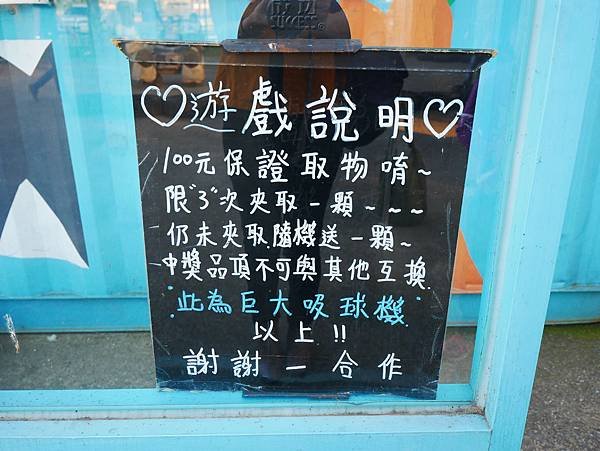 成功
SUCCESS
♡遊戲說明♡
100元保證取物唷~
限"3"次夾取一顆~~~
仍未夾取隨機送一顆~
中獎品項不可與其他互換
此為巨大吸球機
以上!!
謝謝一合作